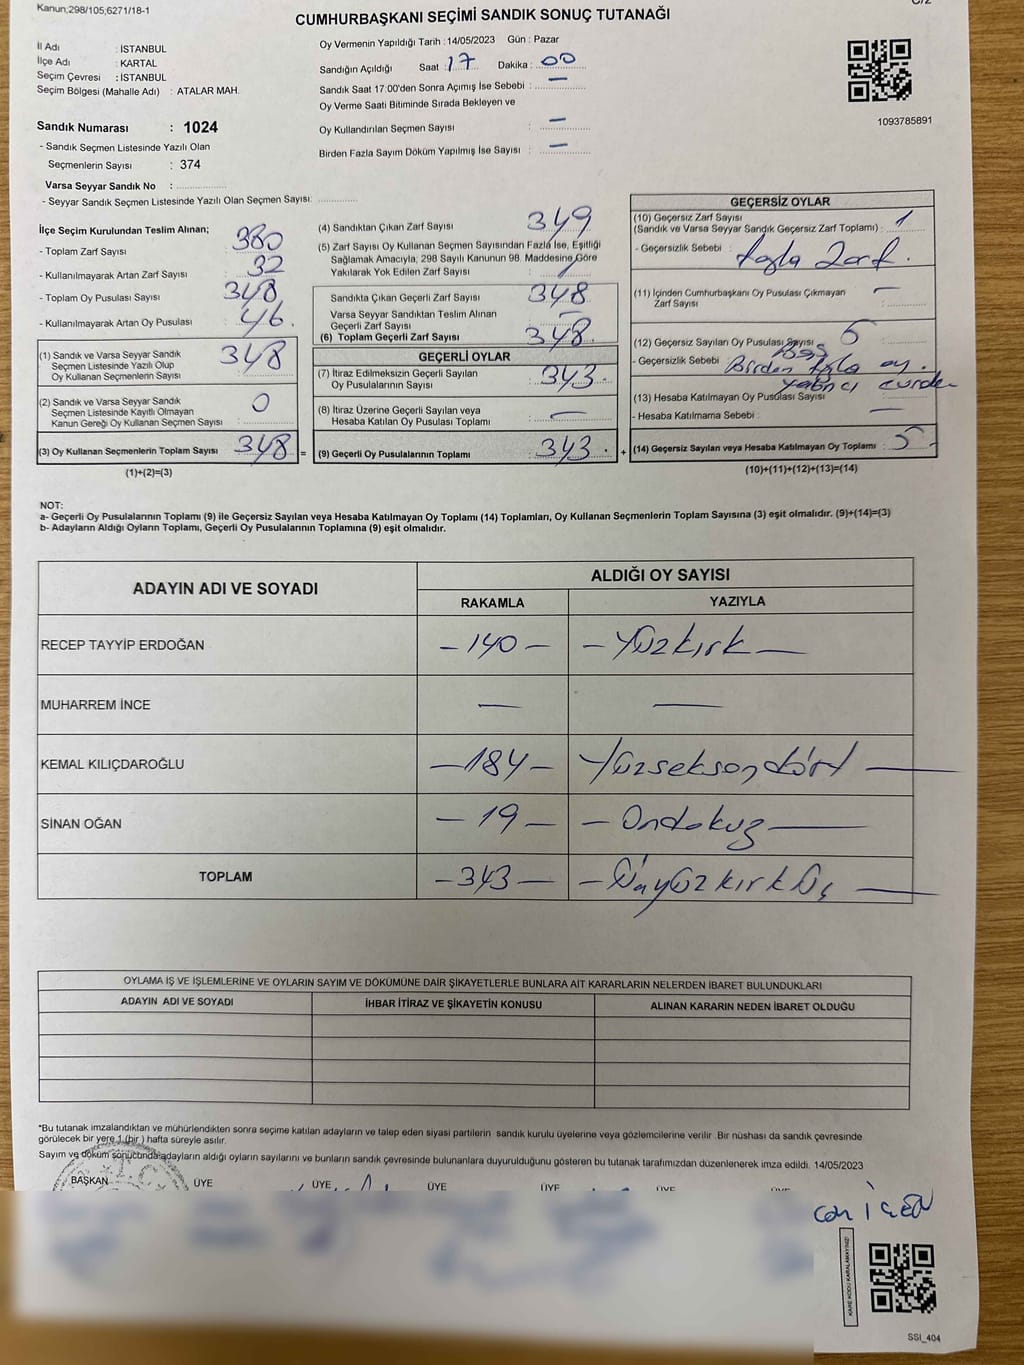 Kanun;298/105;6271/18-1
CUMHURBAŞKANI SEÇİMİ SANDIK SONUÇ TUTANAĞI
İl Adı : İSTANBUL
İlçe Adı : KARTAL
Seçim Çevresi : İSTANBUL
Seçim Bölgesi (Mahalle Adı) : ATALAR MAH.
Oy Vermenin Yapıldığı Tarih : 14/05/2023 Gün : Pazar
Sandığın Açıldığı Saat : 17 Dakika : 00
Sandık Saat 17:00'den Sonra Açımış İse Sebebi : —
Oy Verme Saati Bitiminde Sırada Bekleyen ve
Oy Kullandırılan Seçmen Sayısı : —
Birden Fazla Sayım Döküm Yapılmış İse Sayısı : —
1093785891
Sandık Numarası : 1024
- Sandık Seçmen Listesinde Yazılı Olan
Seçmenlerin Sayısı : 374
Varsa Seyyar Sandık No :
- Seyyar Sandık Seçmen Listesinde Yazılı Olan Seçmen Sayısı:
İlçe Seçim Kurulundan Teslim Alınan;
- Toplam Zarf Sayısı : 380
- Kullanılmayarak Artan Zarf Sayısı : 32
- Toplam Oy Pusulası Sayısı : 348
- Kullanılmayarak Artan Oy Pusulası : 46
(1) Sandık ve Varsa Seyyar Sandık
Seçmen Listesinde Yazılı Olup
Oy Kullanan Seçmenlerin Sayısı : 348
(2) Sandık ve Varsa Seyyar Sandık
Seçmen Listesinde Kayıtlı Olmayan
Kanun Gereği Oy Kullanan Seçmen Sayısı : 0
(3) Oy Kullanan Seçmenlerin Toplam Sayısı : 348 =
(1)+(2)=(3)
(4) Sandıktan Çıkan Zarf Sayısı : 349
(5) Zarf Sayısı Oy Kullanan Seçmen Sayısından Fazla İse, Eşitliği
Sağlamak Amacıyla; 298 Sayılı Kanunun 98. Maddesine Göre
Yakılarak Yok Edilen Zarf Sayısı : 1
Sandıkta Çıkan Geçerli Zarf Sayısı : 348
Varsa Seyyar Sandıktan Teslim Alınan
Geçerli Zarf Sayısı : —
(6) Toplam Geçerli Zarf Sayısı : 348
GEÇERLİ OYLAR
(7) İtiraz Edilmeksizin Geçerli Sayılan
Oy Pusulalarının Sayısı : 343
(8) İtiraz Üzerine Geçerli Sayılan veya
Hesaba Katılan Oy Pusulası Toplamı : —
(9) Geçerli Oy Pusulalarının Toplamı : 343 +
GEÇERSİZ OYLAR
(10) Geçersiz Zarf Sayısı
(Sandık ve Varsa Seyyar Sandık Geçersiz Zarf Toplamı) : 1
- Geçersizlik Sebebi : fazla Zarf.
(11) İçinden Cumhurbaşkanı Oy Pusulası Çıkmayan
Zarf Sayısı : —
(12) Geçersiz Sayılan Oy Pusulası Sayısı : 5
- Geçersizlik Sebebi : Birden fazla oy.
(13) Hesaba Katılmayan Oy Pusulası Sayısı
- Hesaba Katılmama Sebebi : —
(14) Geçersiz Sayılan veya Hesaba Katılmayan Oy Toplamı : 5
(10)+(11)+(12)+(13)=(14)
NOT:
a- Geçerli Oy Pusulalarının Toplamı (9) ile Geçersiz Sayılan veya Hesaba Katılmayan Oy Toplamı (14) Toplamları, Oy Kullanan Seçmenlerin Toplam Sayısına (3) eşit olmalıdır. (9)+(14)=(3)
b- Adayların Aldığı Oyların Toplamı, Geçerli Oy Pusulalarının Toplamına (9) eşit olmalıdır.
ADAYIN ADI VE SOYADI ALDIĞI OY SAYISI
RAKAMLA YAZIYLA
RECEP TAYYİP ERDOĞAN —140— —Yüzkırk—
MUHARREM İNCE — —
KEMAL KILIÇDAROĞLU —184— Yüzseksendört—
SİNAN OĞAN —19— —Ondokuz—
TOPLAM —343— —Üçyüzkırküç—
OYLAMA İŞ VE İŞLEMLERİNE VE OYLARIN SAYIM VE DÖKÜMÜNE DAİR ŞİKAYETLERLE BUNLARA AİT KARARLARIN NELERDEN İBARET BULUNDUKLARI
ADAYIN ADI VE SOYADI İHBAR İTİRAZ VE ŞİKAYETİN KONUSU ALINAN KARARIN NEDEN İBARET OLDUĞU
*Bu tutanak imzalandıktan ve mühürlendikten sonra seçime katılan adayların ve talep eden siyasi partilerin sandık kurulu üyelerine veya gözlemcilerine verilir. Bir nüshası da sandık çevresinde
görülecek bir yere 1 (bir ) hafta süreyle asılır.
Sayım ve döküm sonucunda adayların aldığı oyların sayılarını ve bunların sandık çevresinde bulunanlara duyurulduğunu gösteren bu tutanak tarafımızdan düzenlenerek imza edildi. 14/05/2023
BAŞKAN ÜYE ÜYE ÜYE ÜYE ÜYE ÜYE
KARE KODU KARALAMAYINIZ!
SSI_404